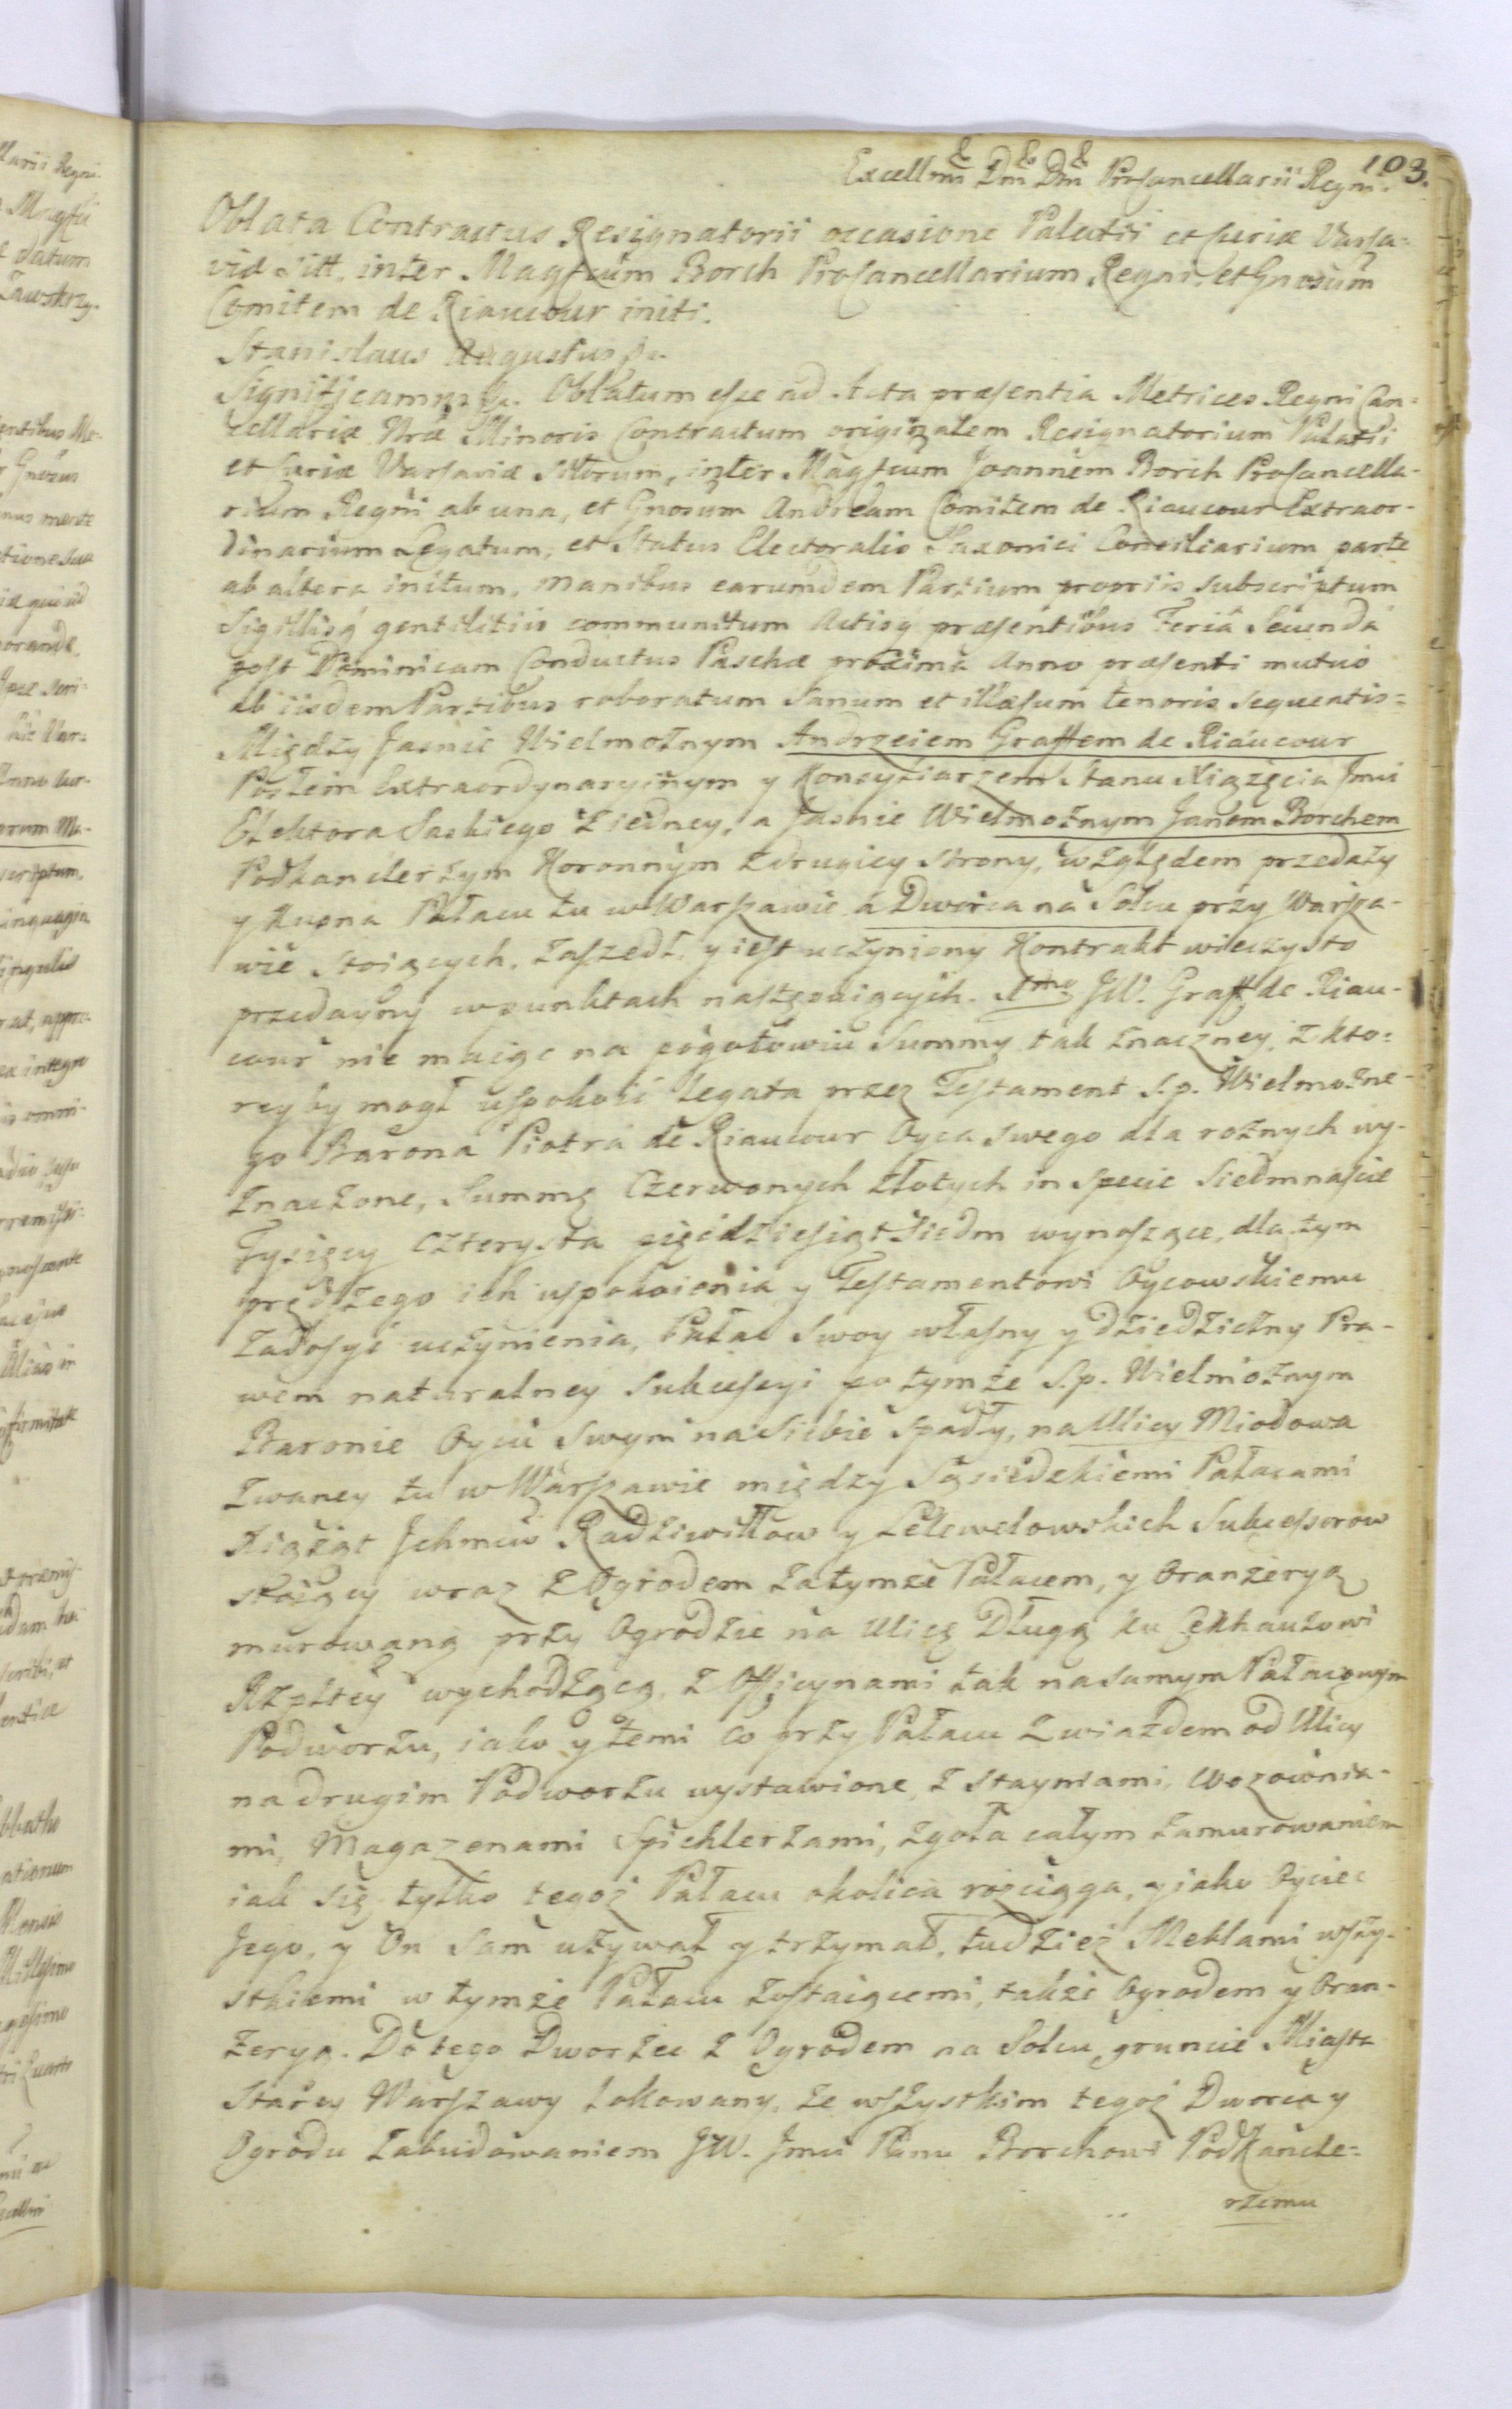 103.
Excellmi Dni Dni Procancellarii Regni.
Oblata Contractus Resignatorii occasione Palatii et Curiæ Varsa-
viæ Sitt. inter Magfcum Borch Procancellarium Regni, et Gnosum
Comitem de Riaucour initi.
Stanislaus Augustus &c.
Significamus &c. Oblatum esse ad Acta præsentia Metrices Regni Can-
cellariæ Nræ Minoris Contractum originalem Resignatorium Palatii
et Curiæ Varsaviæ sitorum, inter Magfcum Joannem Borch Procancella-
rium Regni ab una, et Gnosum Andream Comitem de Riaucour Extraor-
dinarium Legatum, et Status Electoralis Saxonici Consiliarium parte
ab altera initum, manibus earumdem Partium propriis subscriptum
Sigillisq gentilitiis communitum Actisq præsentibus Feriâ Secundâ
post Dominicam Conductus Paschæ proximâ Anno præsenti mutuo
ab iisdem Partibus roboratum Sanum et illæsum tenoris sequentis=
Między Jasnie Wielmożnym Andrzeiem Graffem de Riaucour
Posłem Extraordynaryinym y Konsyliarzem Stanu Xiążęcia Jmci
Elektora Saskiego z iedney, a Jasnie Wielmożnym Janem Borchem
Podkanclerzym Koronnym z drugiey strony, względem przedaży
y kupna Pałacu tu w Warszawie a Dworca na Solcu przy Warsza-
wie stoiących, zaszedł, y iest uczyniony Kontrakt wieczysto
przedażny w punktach następuiących. Xmo JW. Graff de Riau-
cour nie maiąc na pogotowiu Summy tak znaczney, z kto-
reyby mogł uspokoić legata przez Testament S.p. Wielmożne-
go Barona Piotra de Riaucour Oyca swego dla rożnych wy-
znaczone, Summę Czerwonych złotych in specie Siedmnascie
Tysięcy czterysta pięćdziesiąt siedm wynoszące, dla tym
prędszego ich uspokoienia y Testamentowi Oycowskiemu
zadosyć uczynienia, Pałac swoy własny y dziedziczny Pra-
wem naturalney sukcessyi po tymże S.p. Wielmożnym
Baronie Oycu swym na siebie spadły, na Ulicy Miodowa
zwaney tu w Warszawie między Sąsiedzkiemi Pałacami
Xiążąt Jchmciow Radziwiłłow y Lelewelowskich Sukcessorow
stoiący wraz z Ogrodem za tymże Pałacem, y Oranżeryą
murowaną przy Ogrodzie na Ulicę Długą ku Cekhauzowi
Rzpltey wychodzącą, z Officynami tak na samym Pałacowym
Podworzu, iako y temi co przy Pałacu z wiazdem od Ulicy
na drugim Podworzu wystawione, z stayniami, Wozownia-
mi, Magazenami Spichlerzami, zgoła całym zamurowaniem
iak się tylko tegoż Pałacu okolica rozciąga, y iako Oyciec
Jego, y On sam używał y trzymał, tudzież Meblami wszy-
stkiemi w tymże Pałacu zostaiącemi, także Ogrodem y Oran-
żeryą. Do tego Dworzec z Ogrodem na Solcu, gruncie Miasta
Starey Warszawy lokowany, ze wszystkim tegoż Dworca y
Ogrodu zabudowaniem JW. Jmci Panu Borchowi Podkancle=
rzemu